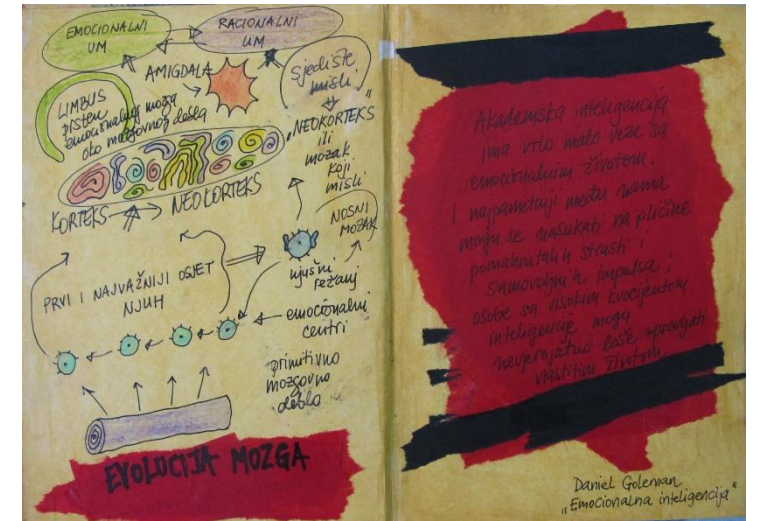 EMOCIONALNI
UM
RACIONALNI
UM
AMIGDALA
LIMBUS
prsten
emocionalnog mozga
oko mozgovnog debla
sjedište
misli
"NEOKORTEKS"
ili
mozak
koji
misli
KORTEKS
NEOKORTEKS
NOSNI
MOZAK
PRVI I NAJVAŽNIJI OSJET
NJUH
njušni
režanj
emocionalni
centri
primitivno
mozgovno
deblo
EVOLUCIJA MOZGA
Akademska inteligencija
ima vrlo malo veze sa
emocionalnim životom.
I najpametniji među nama
mogu se nasukati na pličine
pomahnitalih strasti i
samovoljnih impulsa;
osobe sa visokim kvocijentom
inteligencije mogu
nevjerojatno loše upravljati
vlastitim životom.
Daniel Goleman
„Emocionalna inteligencija"